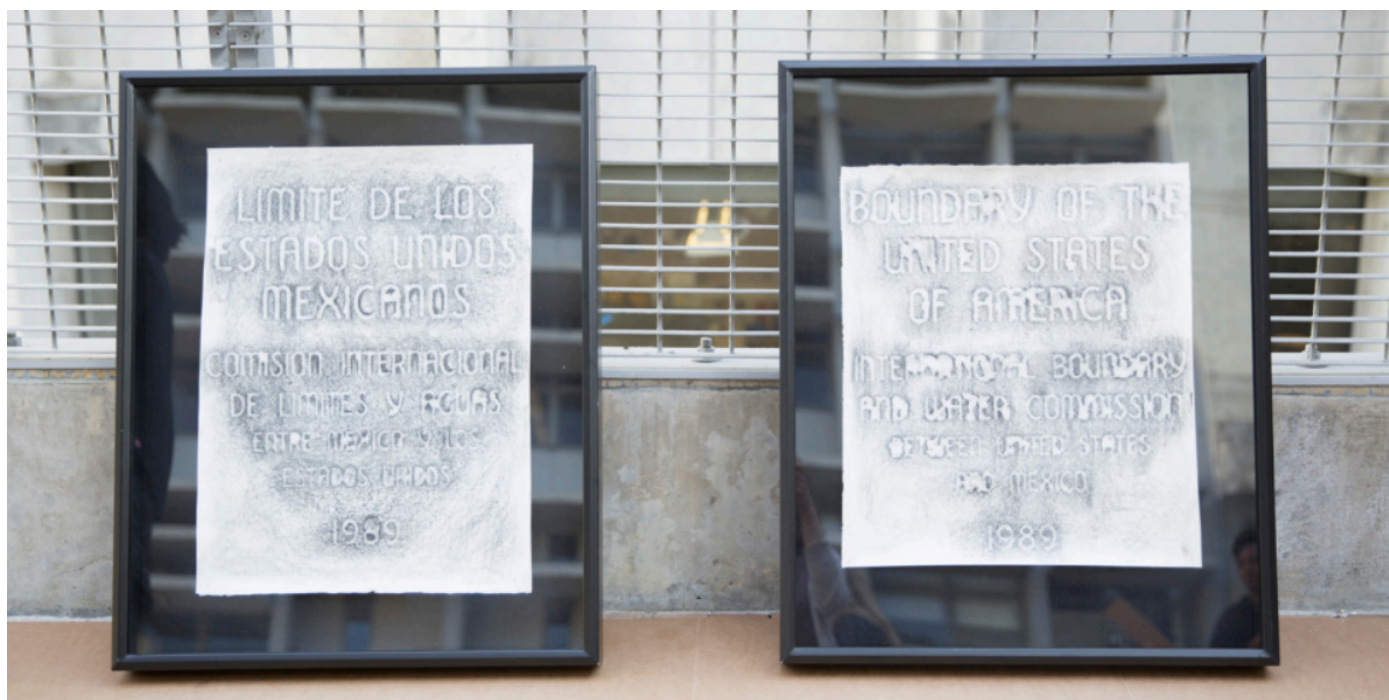 LIMITE DE LOS
ESTADOS UNIDOS
MEXICANOS
COMISION INTERNACIONAL
DE LIMITES Y AGUAS
ENTRE MEXICO Y LOS
ESTADOS UNIDOS
1989
BOUNDARY OF THE
UNITED STATES
OF AMERICA
INTERNATIONAL BOUNDARY
AND WATER COMMISSION
BETWEEN UNITED STATES
AND MEXICO
1989